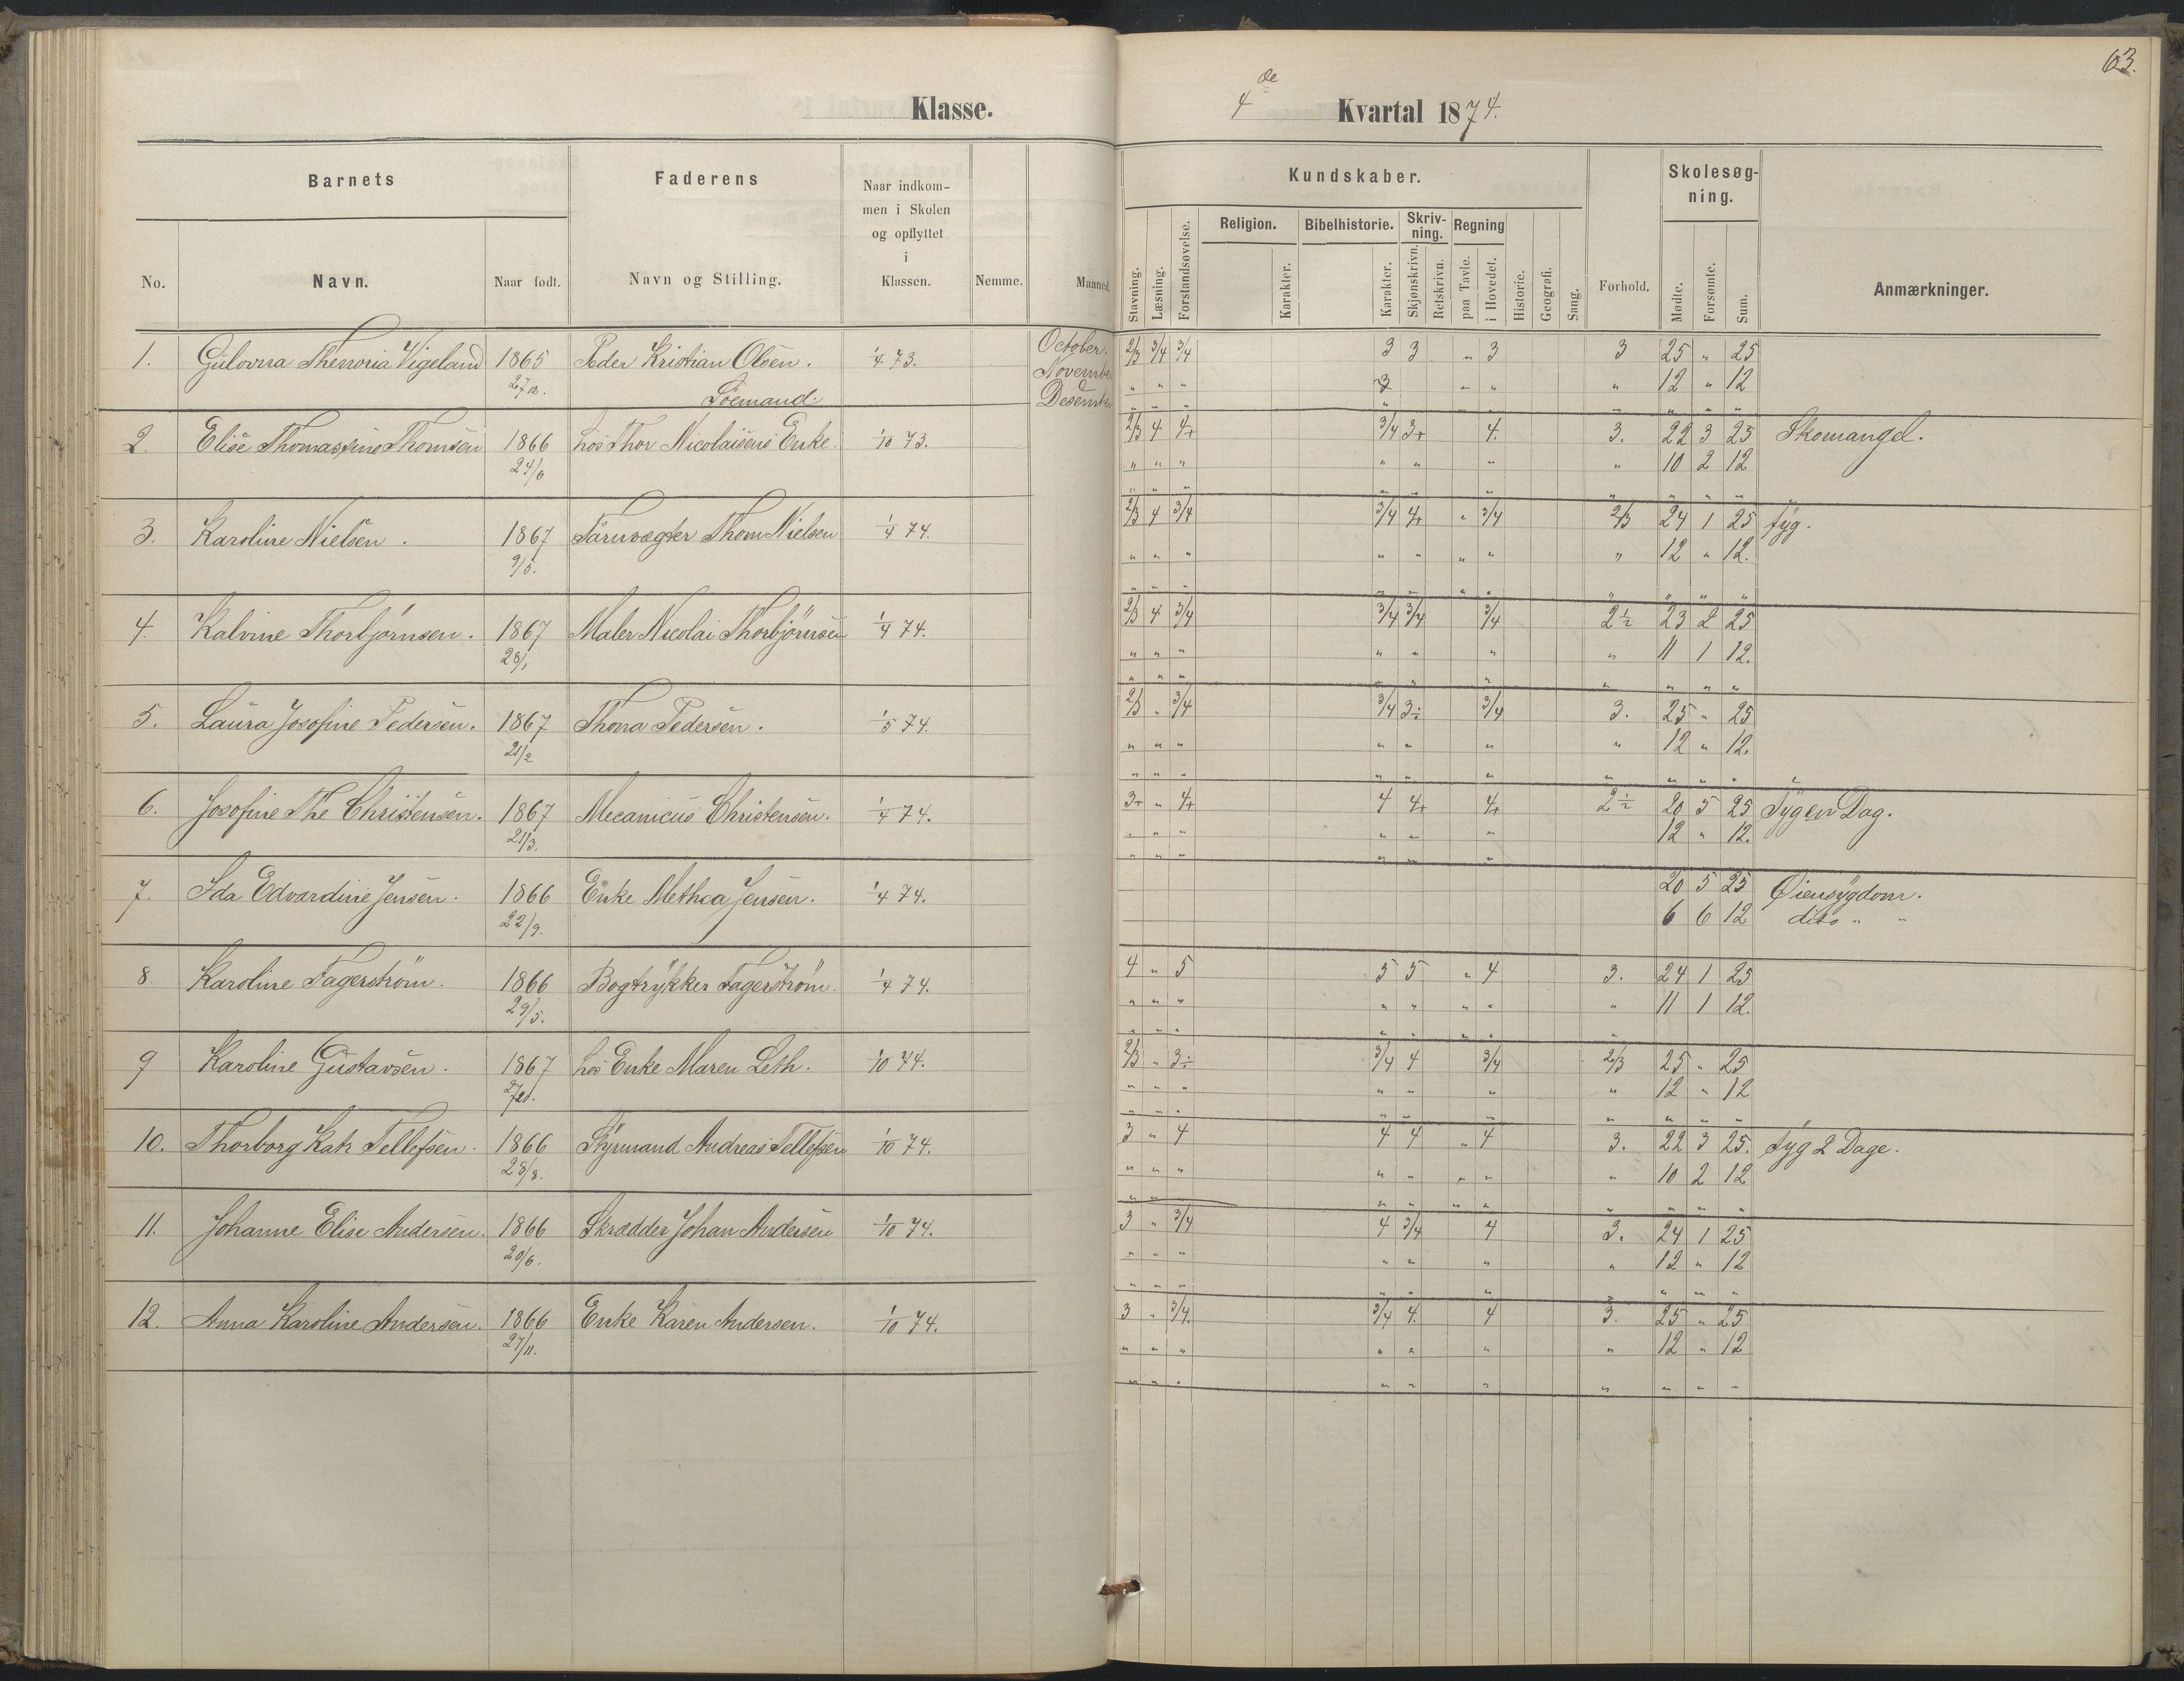 63.
Klasse.
4de Kvartal 1874.
Barnets
Faderens
Naar indkom-
men i Skolen
og opflyttet
i
Klassen.
No. Navn. Naar født. Navn og Stilling. Nemme. Maaned.
Kundskaber.
Skolesøg-
ning.
Religion. Bibelhistorie. Skriv-
ning. Regning
Stavning. Læsning. Forstandsøvelse. Karakter. Karakter. Skjønskrivn. Retskrivn. paa Tavle. i Hovedet. Historie. Geografi. Sang. Forhold. Mødte. Forsømte. Sum. Anmærkninger.
1. Vigeland 1865 Peder Kristian Olsen. 1/4 73. October. 2/3 3/4 3/4 3 3 " 3 3 25 " 25
27/12. Søemand. November " " " 3 " " " 12 " 12
Desember " " " " " " " " " "
2. Elise Thomassine Thomsen 1866 hos Thor Nicolaisens Enke. 1/10 73. 2/3 4 4+ 3/4 3+ 4. 3. 22 3 25 Skomangel.
24/6 " " " " " " " 10 2 12
" " " " " " " " " "
3. Karoline Nielsen. 1867 Taarnvægter Thom Nielsen 1/4 74. 2/3 4 3/4 3/4 4+ " 3/4 2/3 24 1 25 Syg.
9/5. " " " " " " " " 12 " 12.
" " " " " " " " " " "
4. Kalvine Thorbjörnsen. 1867 Maler Nicolai Thorbjörnsen 1/4 74. 2/3 4 3/4 3/4 3/4 3/4 2½ 23 2 25
28/1 " " " " " " " 11 1 12.
" " " " " " " " " "
5. Laura Josofine Pedersen. 1867 Thona Pedersen. 1/5 74. 2/3 " 3/4 3/4 3÷ 3/4 3. 25 " 25
21/2 " " " " " " " 12 " 12.
" " " " " " " " " "
6. Josofine The Christensen. 1867 Mecanicus Christensen. 1/4 74. 3+ " 4+ 4 4+ 4+ 2½ 20 5 25 Syg en Dag.
21/3. " " " " " " 12 " 12.
" " " " " "
7. Ida Edvardine Jensen. 1866 Enke Methea Jensen. 1/4 74. 20 5 25 Øiensygdom.
22/9. 6 6 12 dito " "
8. Karoline Fagerström. 1866 Bogtrykker Fagerström. 1/4 74. 4 " 5 5 5 " 4 3. 24 1 25
29/5. " " " " " " " " 11 1 12.
" " " " " " " "
9 Karoline Gustavsen. 1867 hos Enke Maren Leth. 1/10 74. 2/3 " 3÷ 3/4 4 3/4 2/3 25 " 25
" " " " " " " 12 " 12
" " " " " " " " " "
10. Thorborg Katr Tellefsen. 1866 Styrmand Andreas Tellefsen 1/10 74. 3 " 4 4 4 " 4 3. 22 3 25. Syg 2 Dage.
28/8. " " " " " " " " 10 2 12
" " " " " " " " " "
11. Johanne Elise Andersen. 1866 Skrædder Johan Andersen 1/10 74. 3 " 3/4 4 3/4 4 3. 24 1 25
20/6. " " " " " " " 12 " 12
" " " " " " " " " "
12. Anna Karoline Andersen. 1866 Enke Karen Andersen. 1/10 74. 3 " 3/4. 3/4 4. 4 3. 25 " 25
27/11. " " " " " " " 12 " 12
" " " " " " " " " "